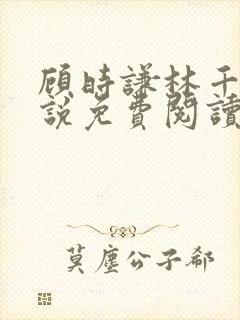 顾時謙林千
説免費閱讀
莫塵公子郗